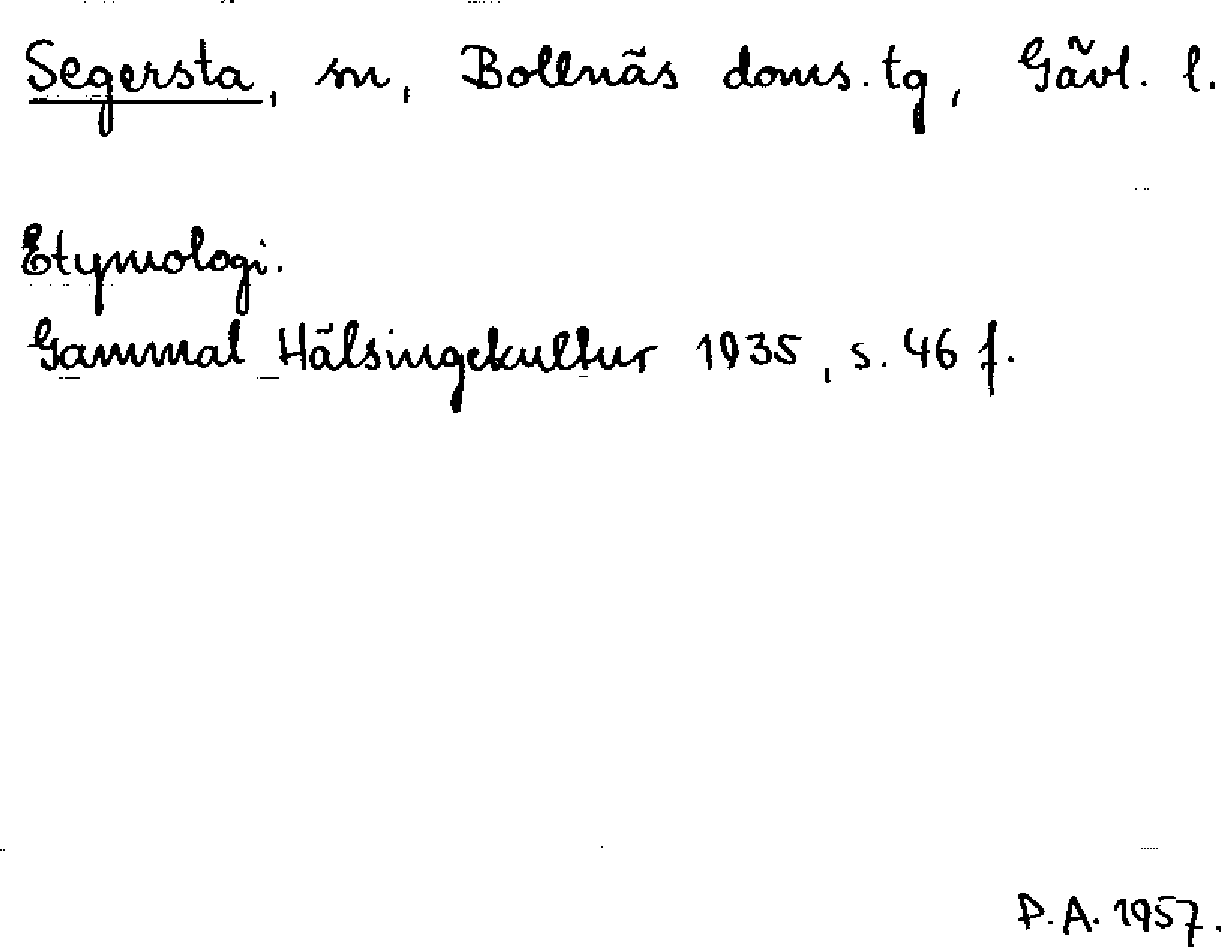 Segersta, sn, Bollnäs doms. tg, Gävl. l.
Etymologi.
Gammal Hälsingekultur 1935, s. 46 f.
P. A. 1957.